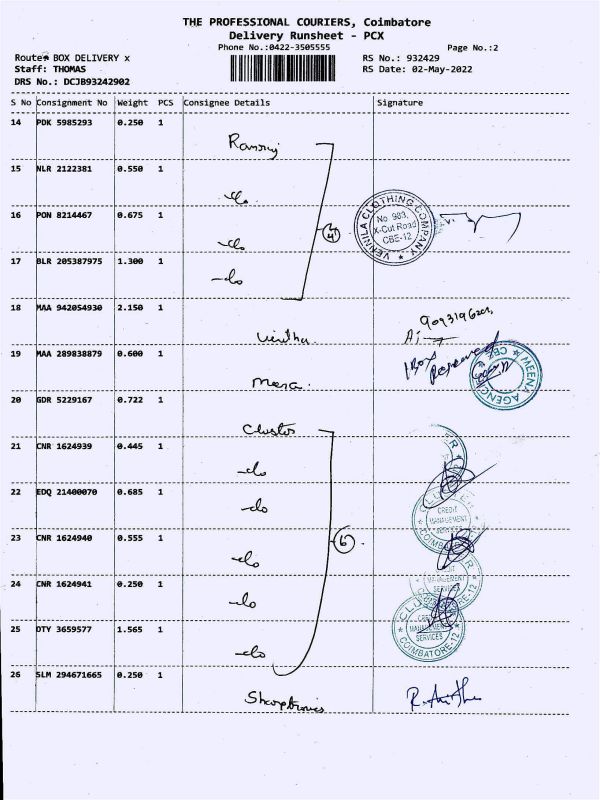 THE PROFESSIONAL COURIERS, Coimbatore
Delivery Runsheet - PCX
Phone No.:0422-3505555
Page No.:2
Route: BOX DELIVERY x
RS No.: 932429
Staff: THOMAS
RS Date: 02-May-2022
DRS No.: DCJB93242902
S No Consignment No Weight PCS Consignee Details Signature
14 PDK 5985293 0.250 1
15 NLR 2122381 0.550 1
-do
16 PON 8214467 0.675 1
-do
VENNILA CLOTHING COMPANY
No. 983,
X-Cut Road
CBE-12
4
17 BLR 205387975 1.300 1
-do
18 MAA 942054930 2.150 1
19 MAA 289838879 0.600 1
1 Box
MEENA AGENC
CBE
20 GDR 5229167 0.722 1
Cluster
21 CNR 1624939 0.445 1
-do
22 EDQ 21400070 0.685 1
-do
CREDIT
MANAGEMENT
SERVICES
COIMBATORE-12
23 CNR 1624940 0.555 1
-do
6
24 CNR 1624941 0.250 1
-do
MANAGEMENT
SERVICES
25 DTY 3659577 1.565 1
-do
MANAGEMENT
SERVICES
COIMBATORE-12
26 SLM 294671665 0.250 1
Sharptronics